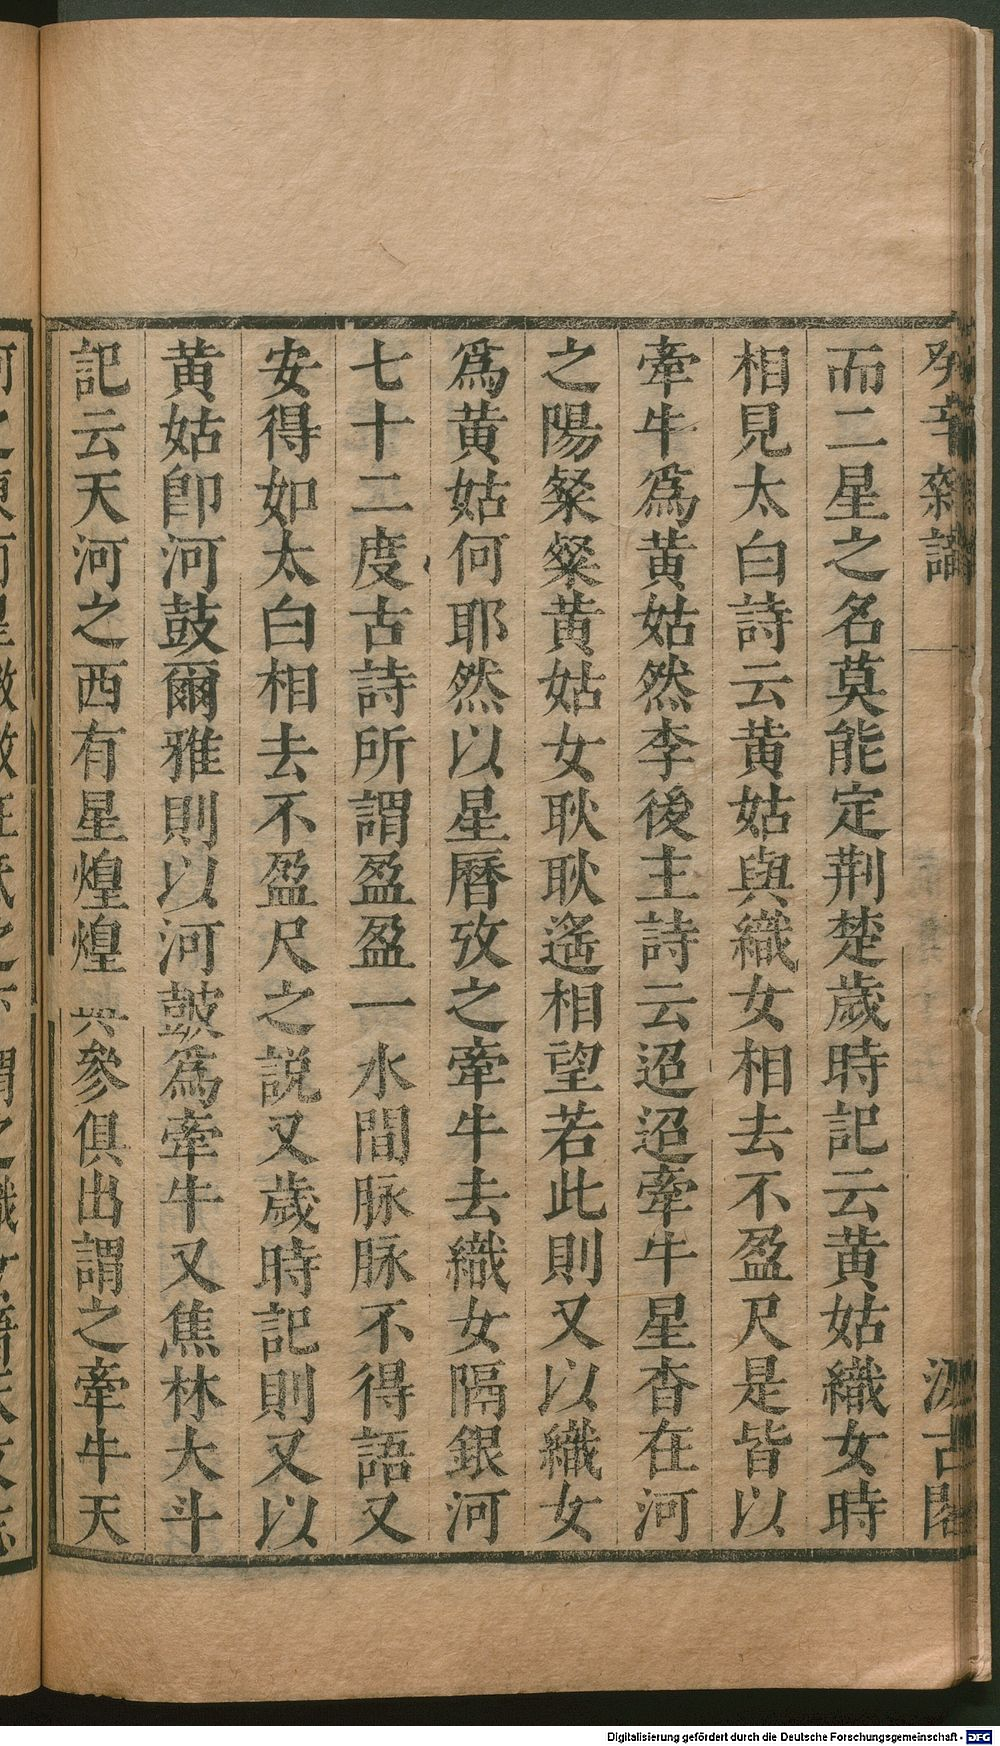 癸辛雜識
汲古閣
而二星之名莫能定荆楚歲時記云黄姑織女時
相見太白詩云黄姑與織女相去不盈尺是皆以
牽牛爲黄姑然李後主詩云迢迢牽牛星杳在河
之陽粲粲黄姑女耿耿遙相望若此則又以織女
爲黄姑何耶然以星曆攷之牽牛去織女隔銀河
七十二度古詩所謂盈盈一水間脉脉不得語又
安得如太白相去不盈尺之説又歲時記則又以
黄姑卽河鼓爾雅則以河鼓爲牽牛又焦林大斗
記云天河之西有星煌煌與參俱出謂之牽牛天
Digitalisierung gefördert durch die Deutsche Forschungsgemeinschaft - DFG